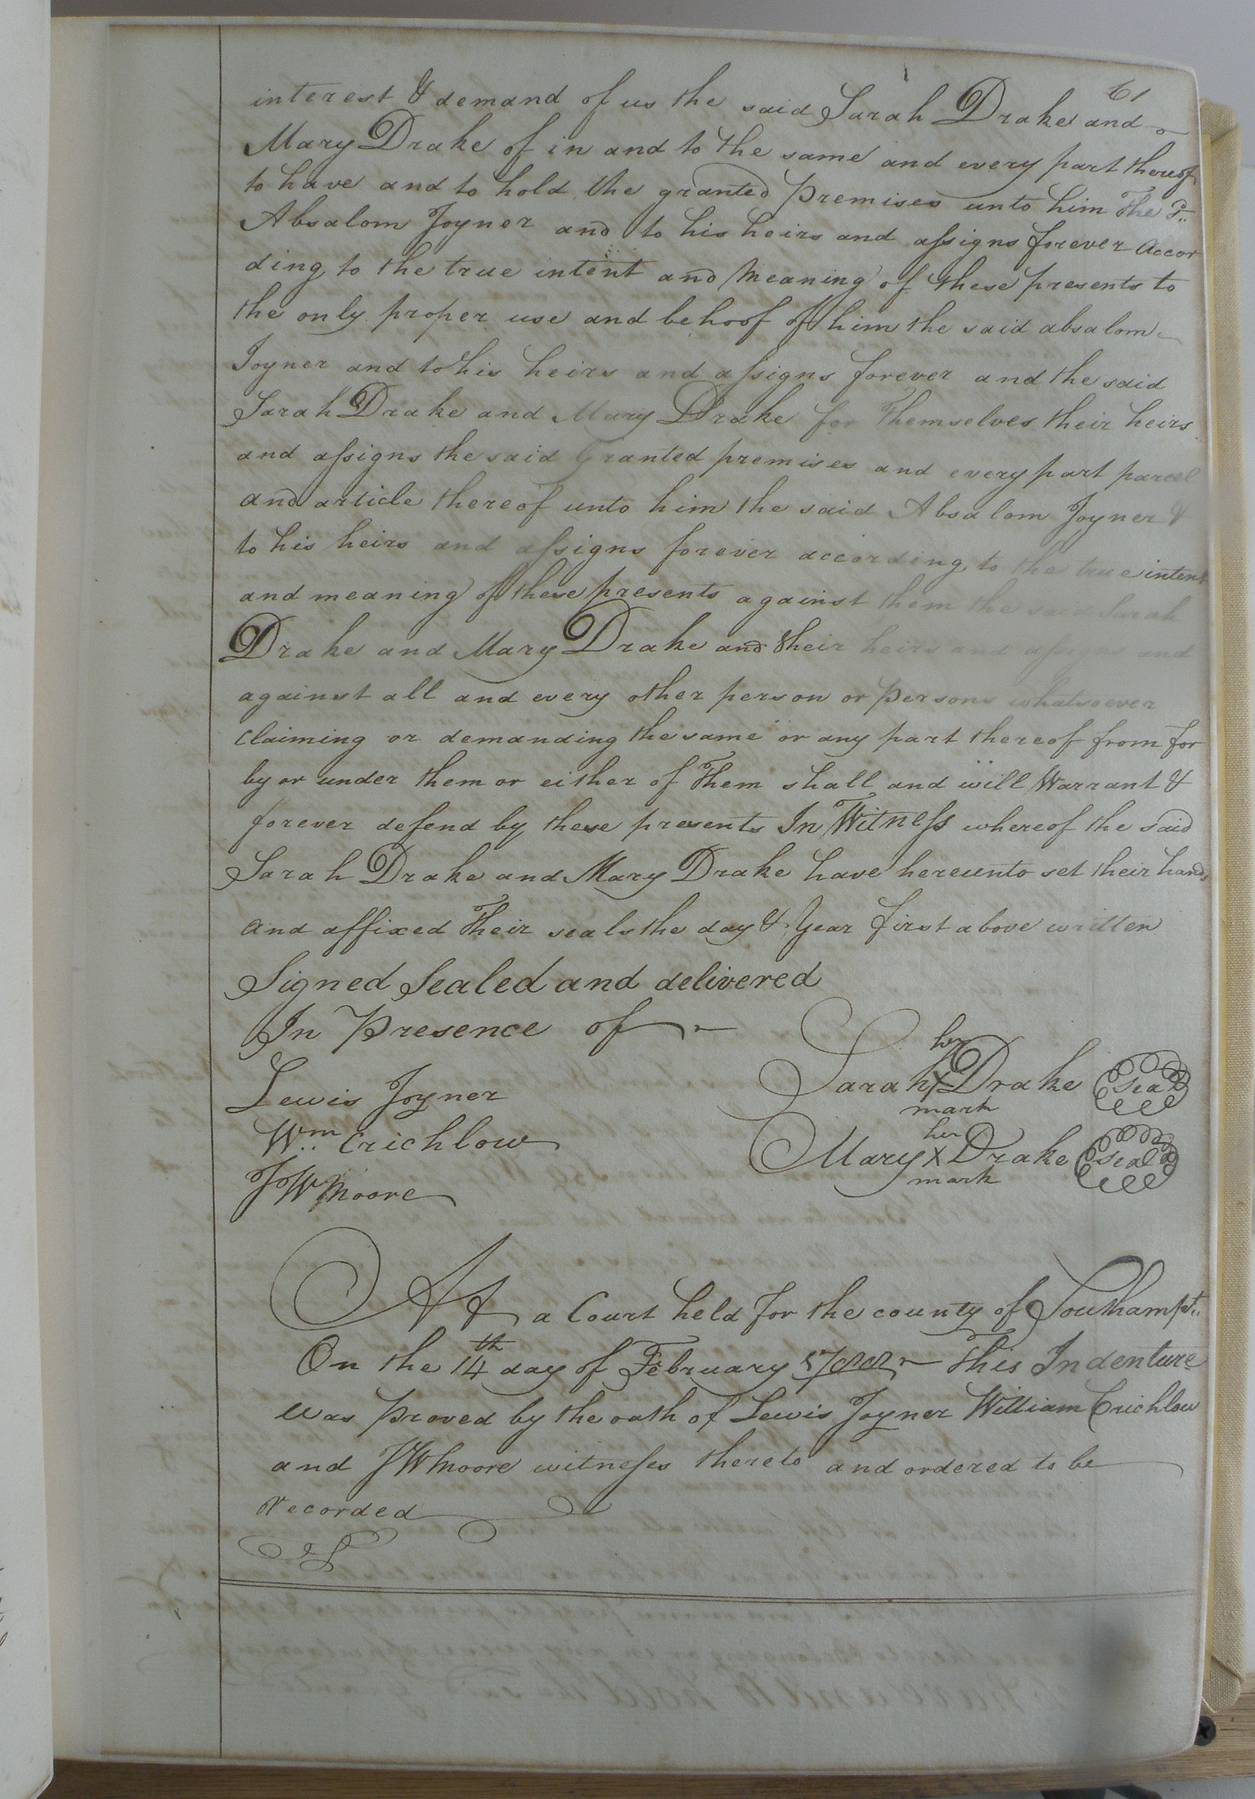 61
interest & demand of us the said Sarah Drake and
Mary Drake of in and to the same and every part thereof
to have and to hold the granted Premises unto him The sd.
Absalom Joyner and to his heirs and assigns forever accor
ding to the true intent and Meaning of these presents to
the only proper use and behoof of him the said absalom
Joyner and to his heirs and assigns forever and the said
Sarah Drake and Mary Drake for themselves their heirs
and assigns the said Granted premises and every part parcel
and article thereof unto him the said Absalom Joyner &
to his heirs and assigns forever according to the true intent
and meaning of these presents against them the said Sarah
Drake and Mary Drake and their heirs and assigns and
against all and every other person or persons whatsoever
Claiming or demanding the same or any part thereof from for
by or under them or either of Them shall and will Warrant &
forever defend by these presents In Witness whereof the said
Sarah Drake and Mary Drake have hereunto set their hands
and affixed Their seals the day & Year first above written
Signed Sealed and delivered
In Presence of
Lewis Joyner
Wm. Crichlow
J W Moore
her
Sarah X Drake Seal
mark
her
Mary X Drake Seal
mark
At a Court held for the county of Southampt.
On the 14th day of February This Indenture
was Proved by the oath of Lewis Joyner William Crichlow
and J W Moore witnesses thereto and ordered to be
recorded